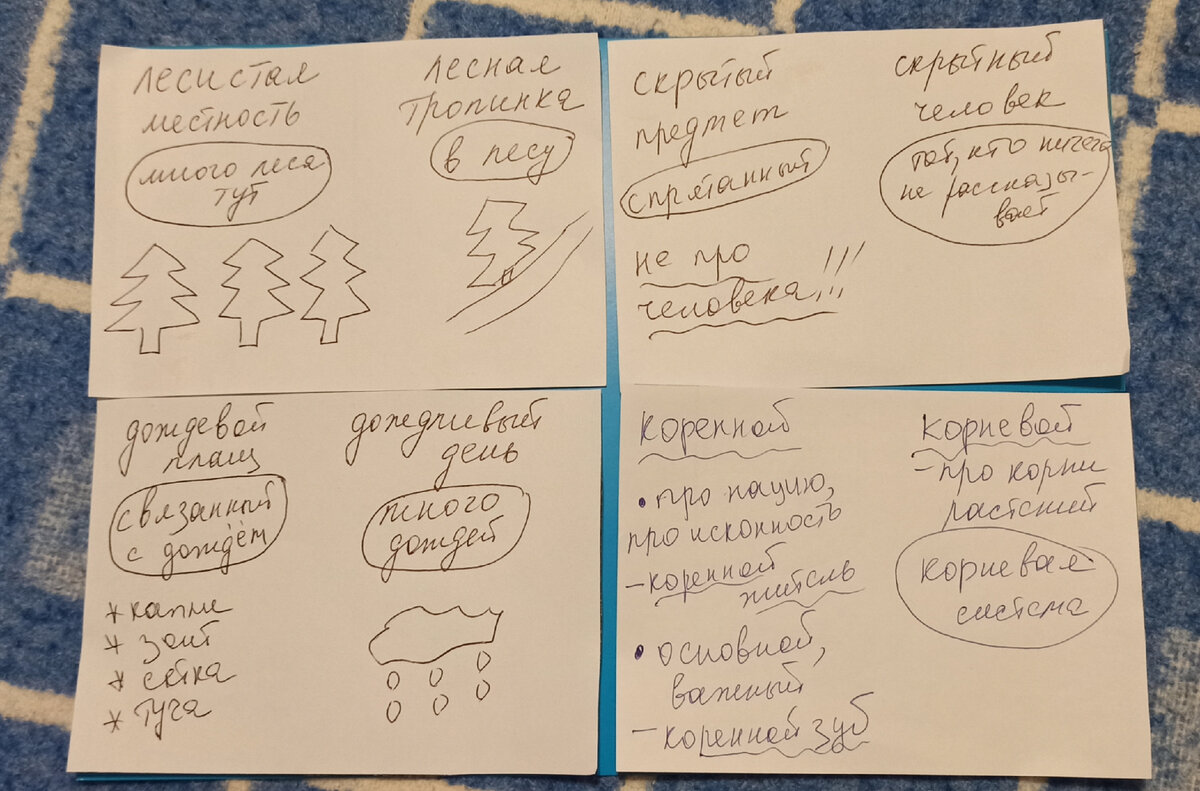 лесистая
местность
много леса
тут
лесная
тропинка
в лесу
скрытый
предмет
спрятанный
не про
человека!!!
скрытный
человек
тот, кто ничего
не рассказы-
вает
дождевой
плащ
связанный
с дождём
* капли
* зонт
* сетка
* туча
дождливый
день
много
дождей
коренной
• про нацию,
про исконность
– коренной
житель
• основной,
важный
– коренной зуб
корневой
– про корни
растений
корневая
система